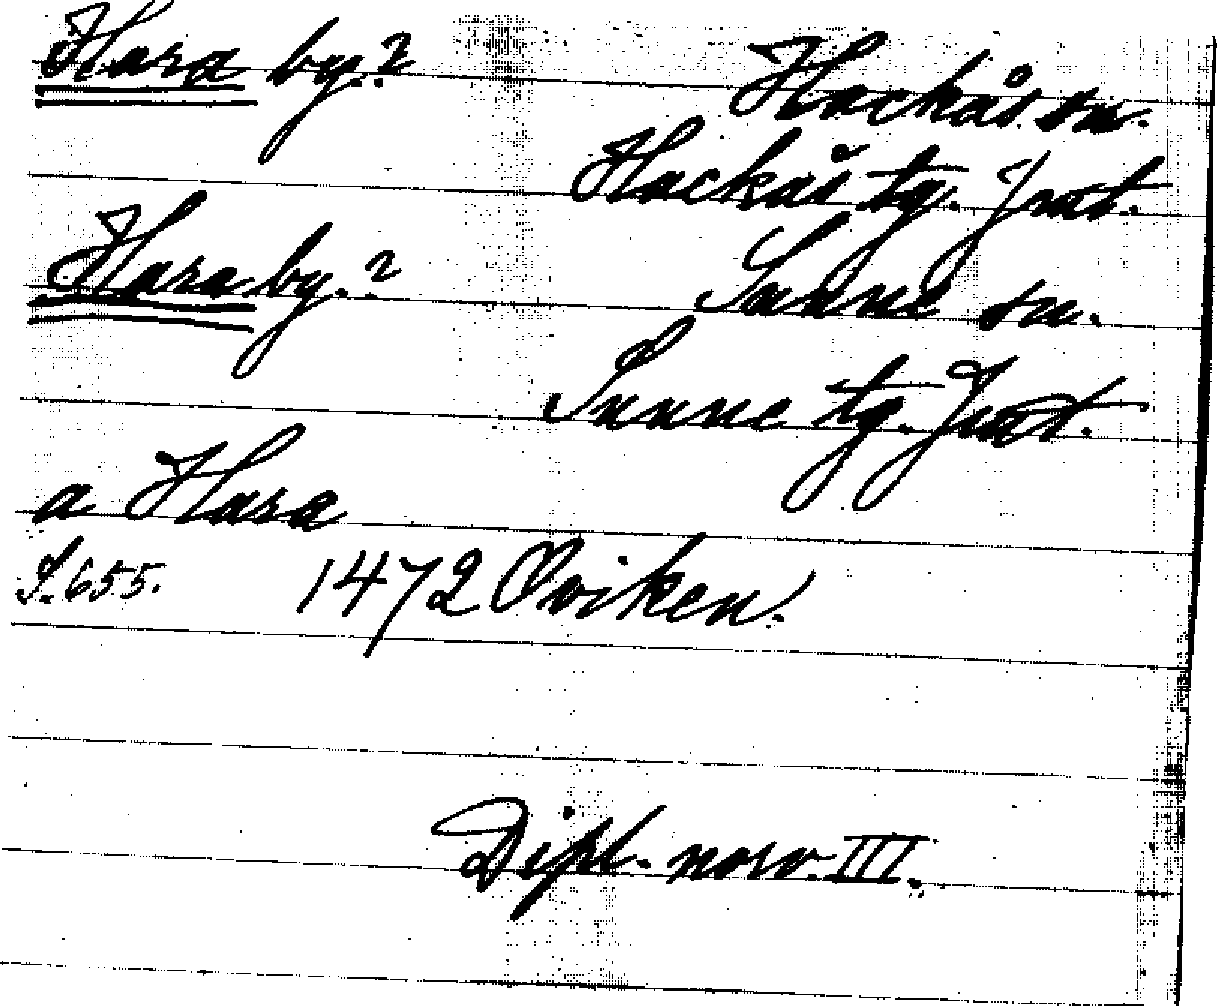 Hara by.? Hackås sn.
Hackås tg. Jmt.
Hara by.? Sunne sn.
Sunne tg. Jmt.
a Hara
S. 655. 1472 Oviken.
Dipl. norv. III.